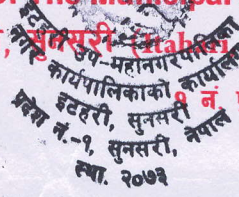 The Municipal
सुनसरी (Itahari
इटहरी उप-महानगरपालिका
नगर कार्यपालिकाको कार्यालय
इटहरी, सुनसरी
१ नं.
प्रदेश नं.-१, सुनसरी, नेपाल
स्था. २०७३